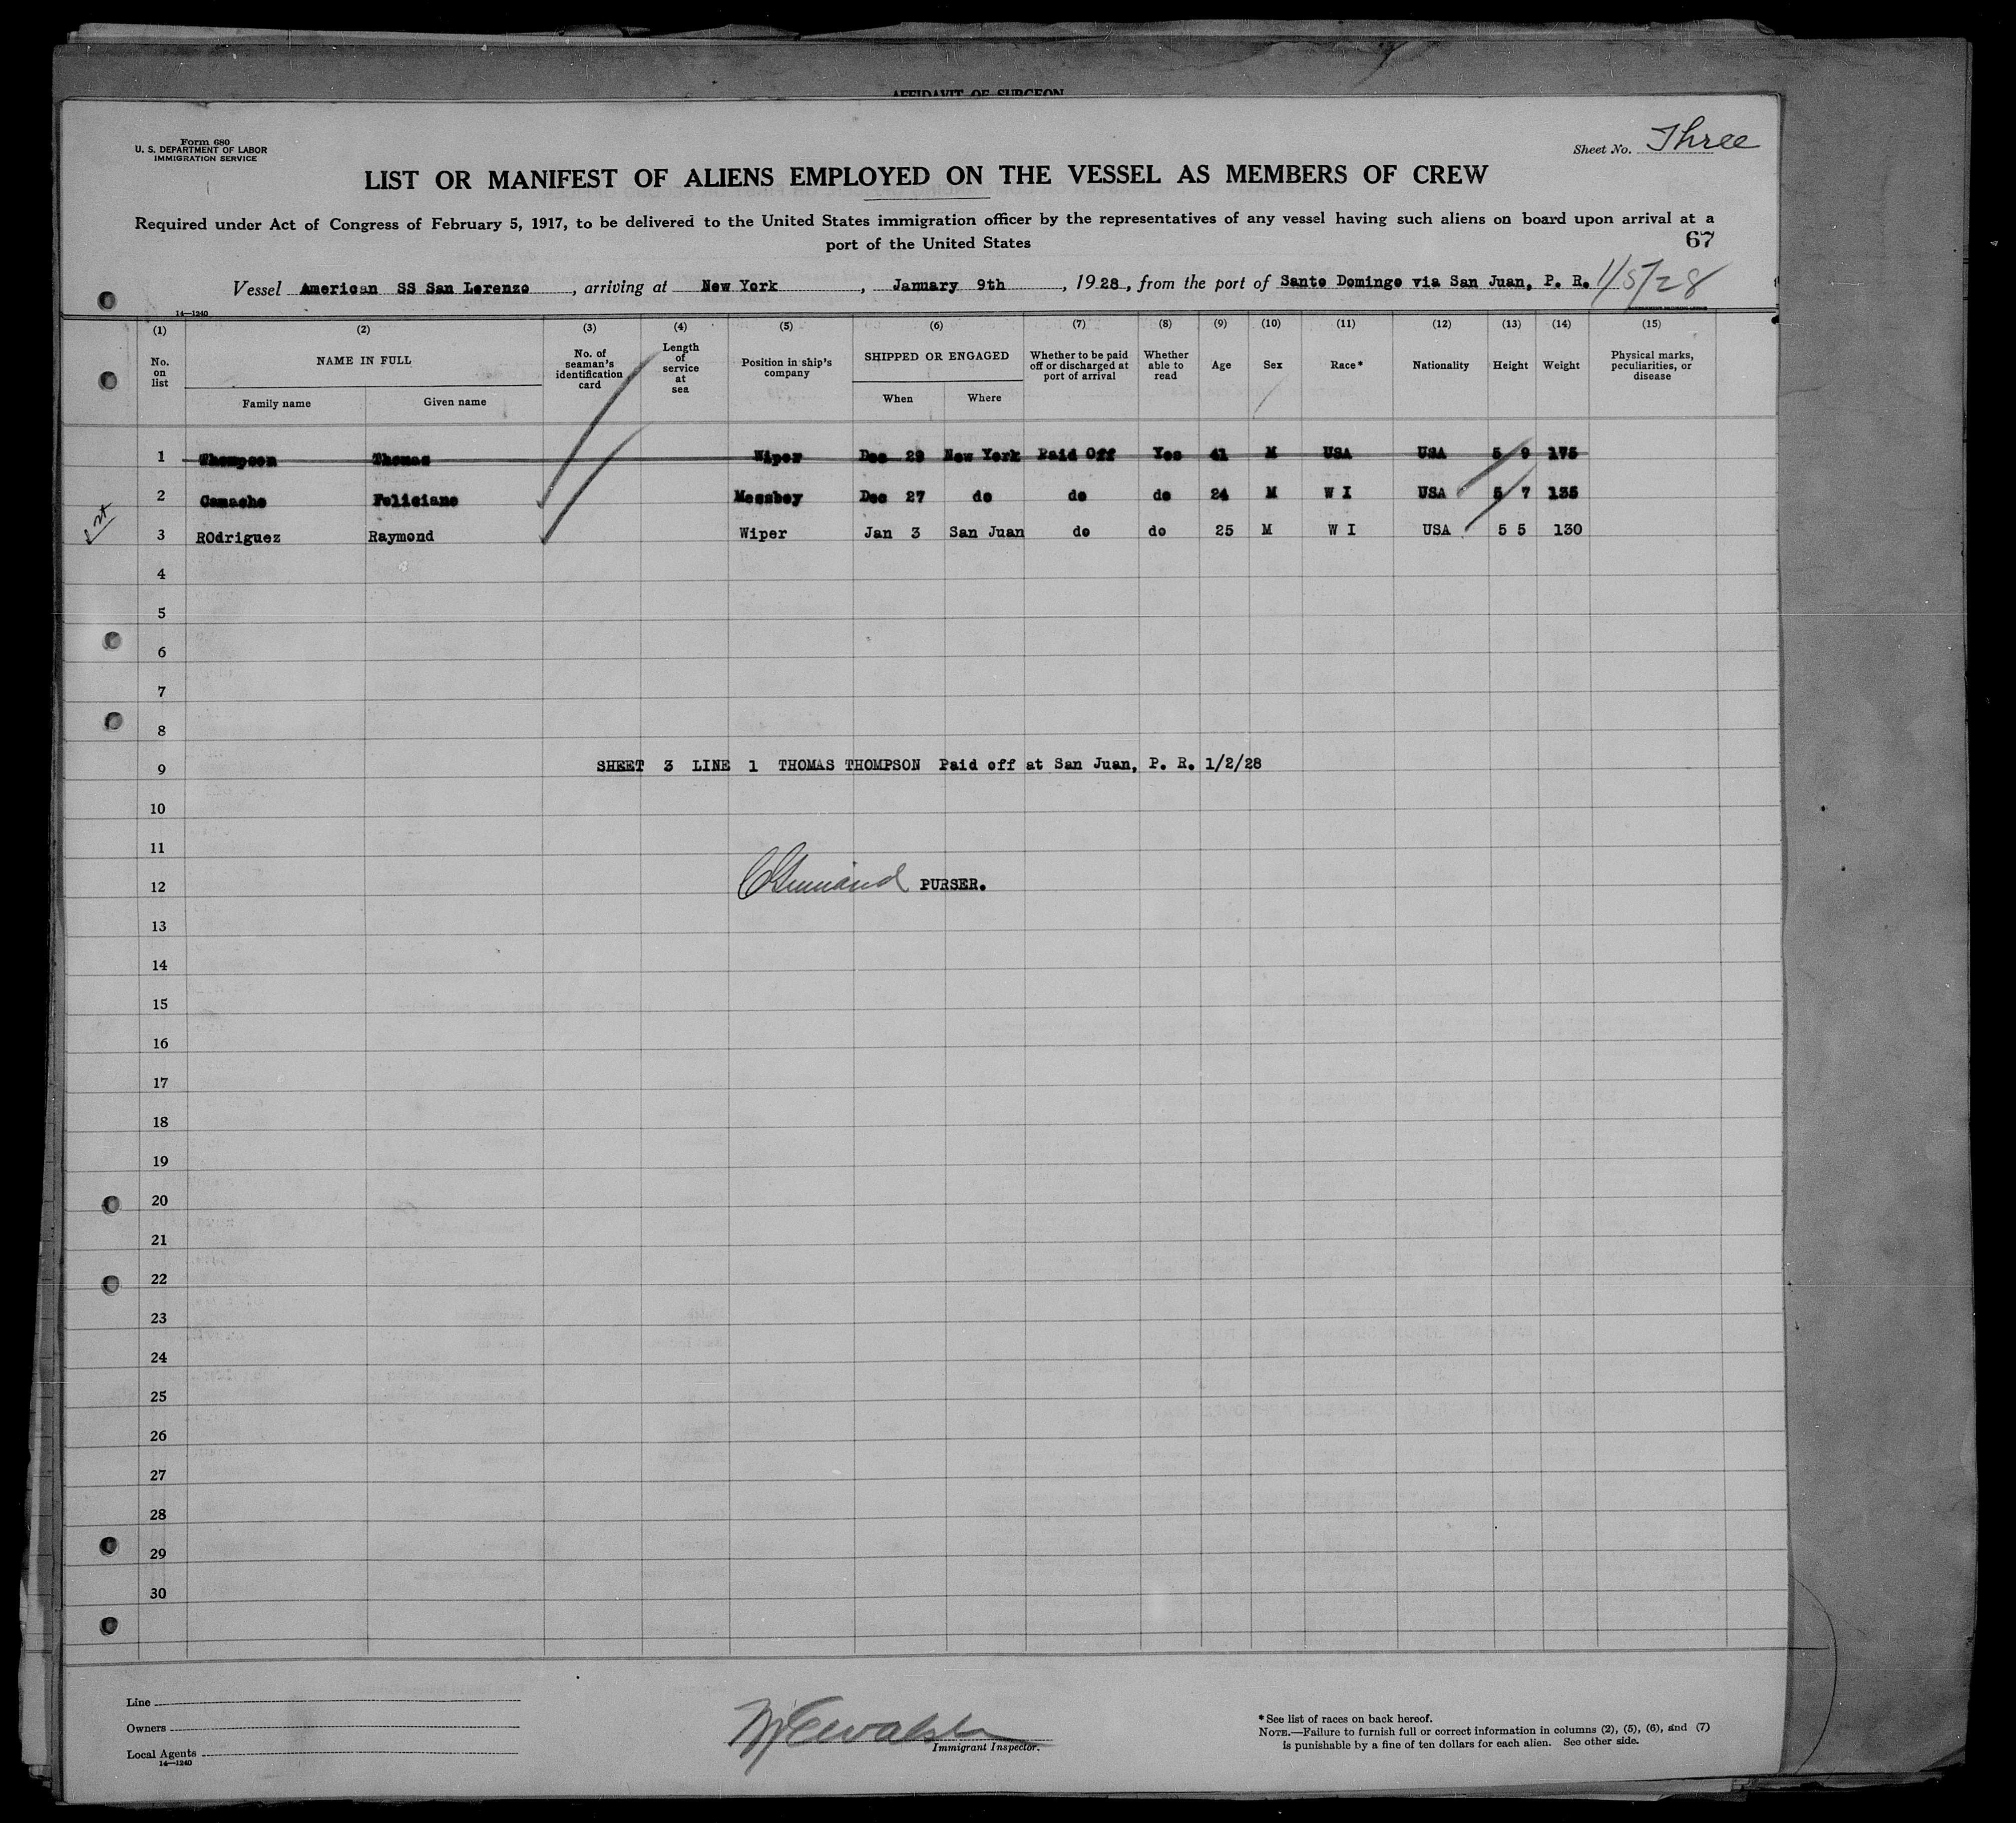 AFFIDAVIT OF SURGEON
Form 680
U. S. DEPARTMENT OF LABOR
IMMIGRATION SERVICE
Sheet No. Three
LIST OR MANIFEST OF ALIENS EMPLOYED ON THE VESSEL AS MEMBERS OF CREW
Required under Act of Congress of February 5, 1917, to be delivered to the United States immigration officer by the representatives of any vessel having such aliens on board upon arrival at a
port of the United States
67
Vessel American SS San Lorenzo, arriving at New York, January 9th, 1928, from the port of Santo Domingo via San Juan, P. R. 1/5/28
14—1240
(1) (2) (3) (4) (5) (6) (7) (8) (9) (10) (11) (12) (13) (14) (15)
No. on list
NAME IN FULL
Family name
Given name
No. of seaman's identification card
Length of service at sea
Position in ship's company
SHIPPED OR ENGAGED
When
Where
Whether to be paid off or discharged at port of arrival
Whether able to read
Age
Sex
Race*
Nationality
Height
Weight
Physical marks, peculiarities, or disease
1 Thompson Thomas Wiper Dec 29 New York Paid Off Yes 41 M USA USA 5 9 175
2 Camacho Feliciano Messboy Dec 27 do do do 24 M W I USA 5 7 135
3 ROdriguez Raymond Wiper Jan 3 San Juan do do 25 M W I USA 5 5 130
4
5
6
7
8
9 SHEET 3 LINE 1 THOMAS THOMPSON Paid off at San Juan, P. R. 1/2/28
10
11
12 PURSER.
13
14
15
16
17
18
19
20
21
22
23
24
25
26
27
28
29
30
Line
Owners
Local Agents
14—1240
Immigrant Inspector.
*See list of races on back hereof.
NOTE.—Failure to furnish full or correct information in columns (2), (5), (6), and (7)
is punishable by a fine of ten dollars for each alien. See other side.